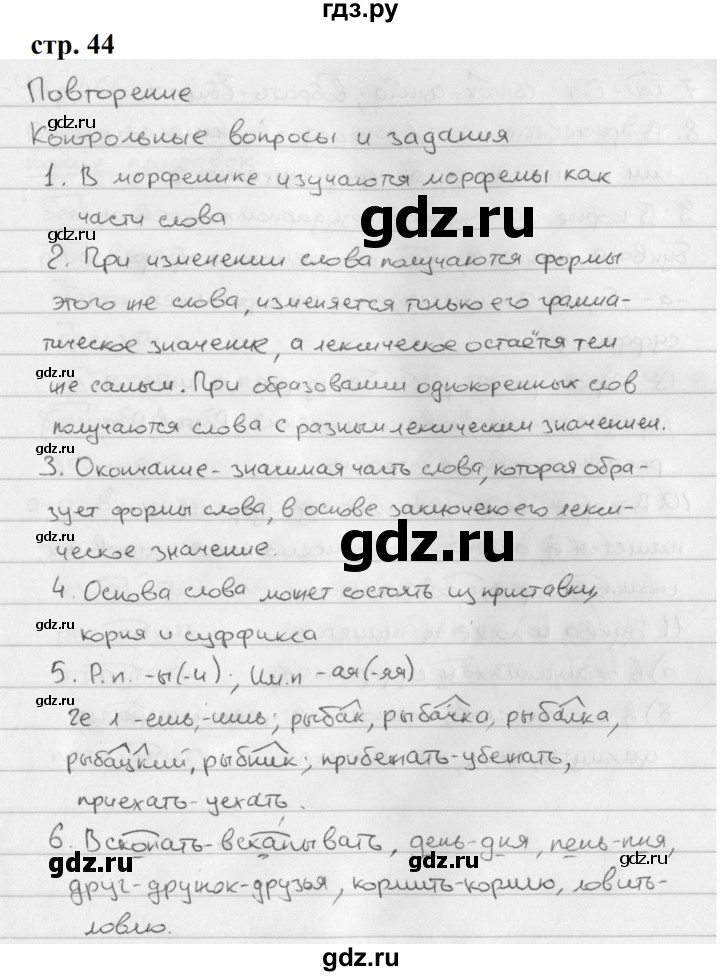 гдз.ру
стр. 44
Повторение
Контрольные вопросы и задания
1. В морфемике изучаются морфемы как
части слова
gdz.ru
gdz.ru
2. При изменении слова получаются формы
этого же слова, изменяется только его грамма-
gdz.ru
тическое значение, а лексическое остаётся тем
gdz.ru
же самым. При образовании однокоренных слов
получаются слова с разным лексическим значением.
gdz.ru
3. Окончание - значимая часть слова, которая обра-
зует формы слова, в основе заключено его лекси-
gdz.ru
ческое значение.
gdz.ru
4. Основа слова может состоять из приставки,
gdz.ru
корня и суффикса
5. Р.п. -ы(-и); Им.п -ая(-яя)
gdz.ru
2е л -ешь,-ишь; рыбак, рыбачка, рыбалка,
рыбацкий, рыбник; прибежать-убежать,
gdz.ru
приехать-уехать.
6. Вскопать-вскапывать, день-дня, пень-пня,
gdz.ru
gdz.ru
gdz.ru
друг-дружок-друзья, кормить-кормлю, ловить-
ловлю.
gdz.ru